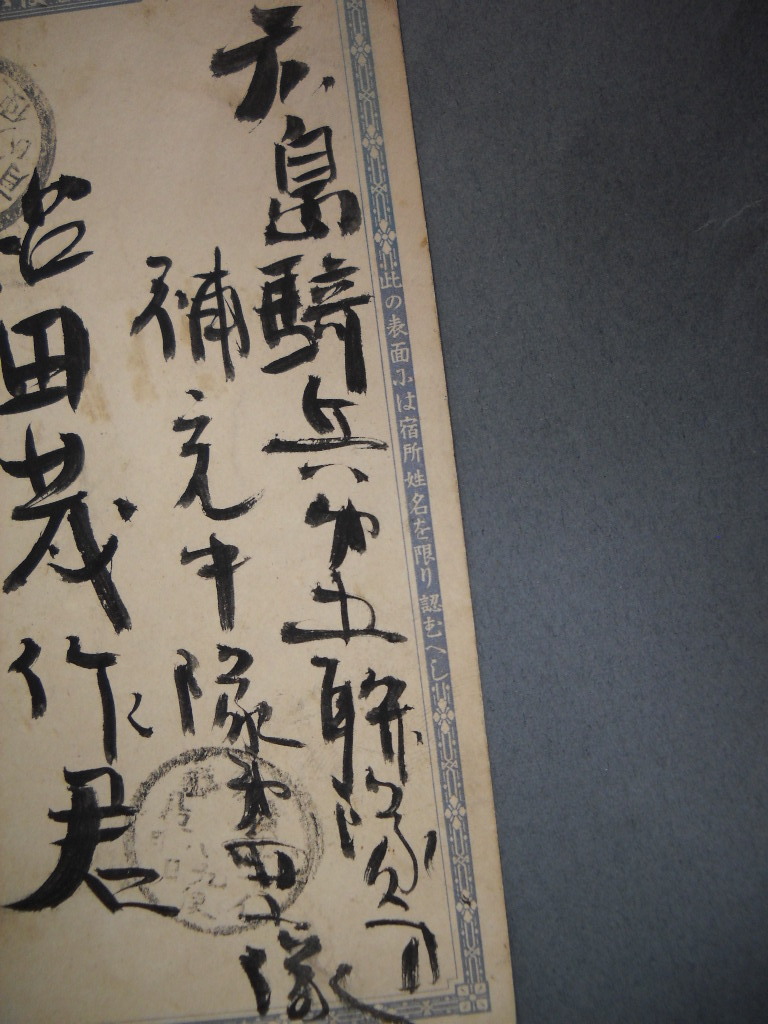 此の表面には宿所姓名を限り認むへし
広島騎兵第五聯隊内
補充中隊第四小隊
沼田茂作君